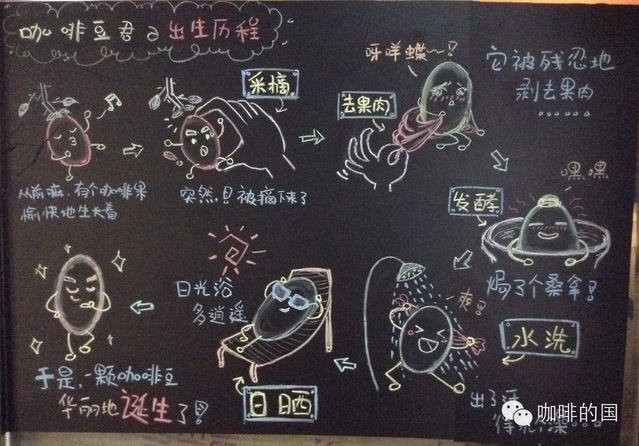 咖啡豆君の出生历程
从前嘛,有个咖啡果
愉快地生长着
采摘
突然且被摘下来了
呀咩蝶~!
去果肉
它被残忍地
剥去果肉
......
嘿嘿
发酵
焗了个桑拿!
爽!!
水洗
出了汗
日光浴
多逍遥
日晒
于是,一颗咖啡豆
华丽地诞生了!
咖啡的国